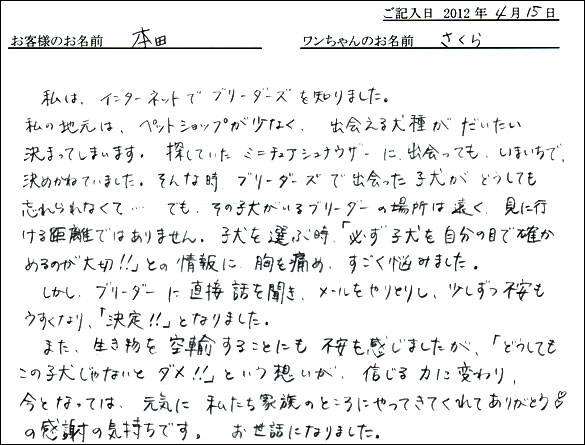 ご記入日 2012年 4月 15日
お客様のお名前 本田 ワンちゃんのお名前 さくら
私は、インターネットで ブリーダーズ を知りました。
私の地元は、ペットショップが少なく、出会える犬種が だいたい
決まってしまいます。探していた ミニチュアシュナウザー に、出会っても、いまいちで、
決めかねていました。そんな時、ブリーダーズ で出会った 子犬が どうしても
忘れられなくて… でも、その子犬がいるブリーダー の場所は 遠く、見に行
ける距離ではありません。子犬を 選ぶ時、「必ず 子犬を 自分の目で確か
めるのが大切!!」との 情報に、胸を痛め、すごく悩みました。
しかし、ブリーダー に 直接 話を聞き、メールをやりとりし、少しずつ 不安も
うすくなり、「決定!!」となりました。
また、生き物を 空輸 することにも 不安を感じましたが、「どうしても
この子犬じゃないと ダメ!!」という 想いが、信じる 力に変わり、
今となっては、元気に 私たち家族のところにやってきてくれてありがとう♡
の感謝の気持ちです。 お世話になりました。